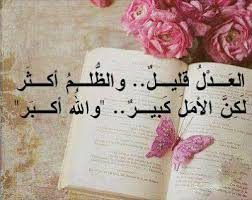 العَدْلُ قَليلٌ.. والظُّلمُ أكثَر
لكنَّ الأمَل كبيرٌ.. "واللهُ أكبَر"